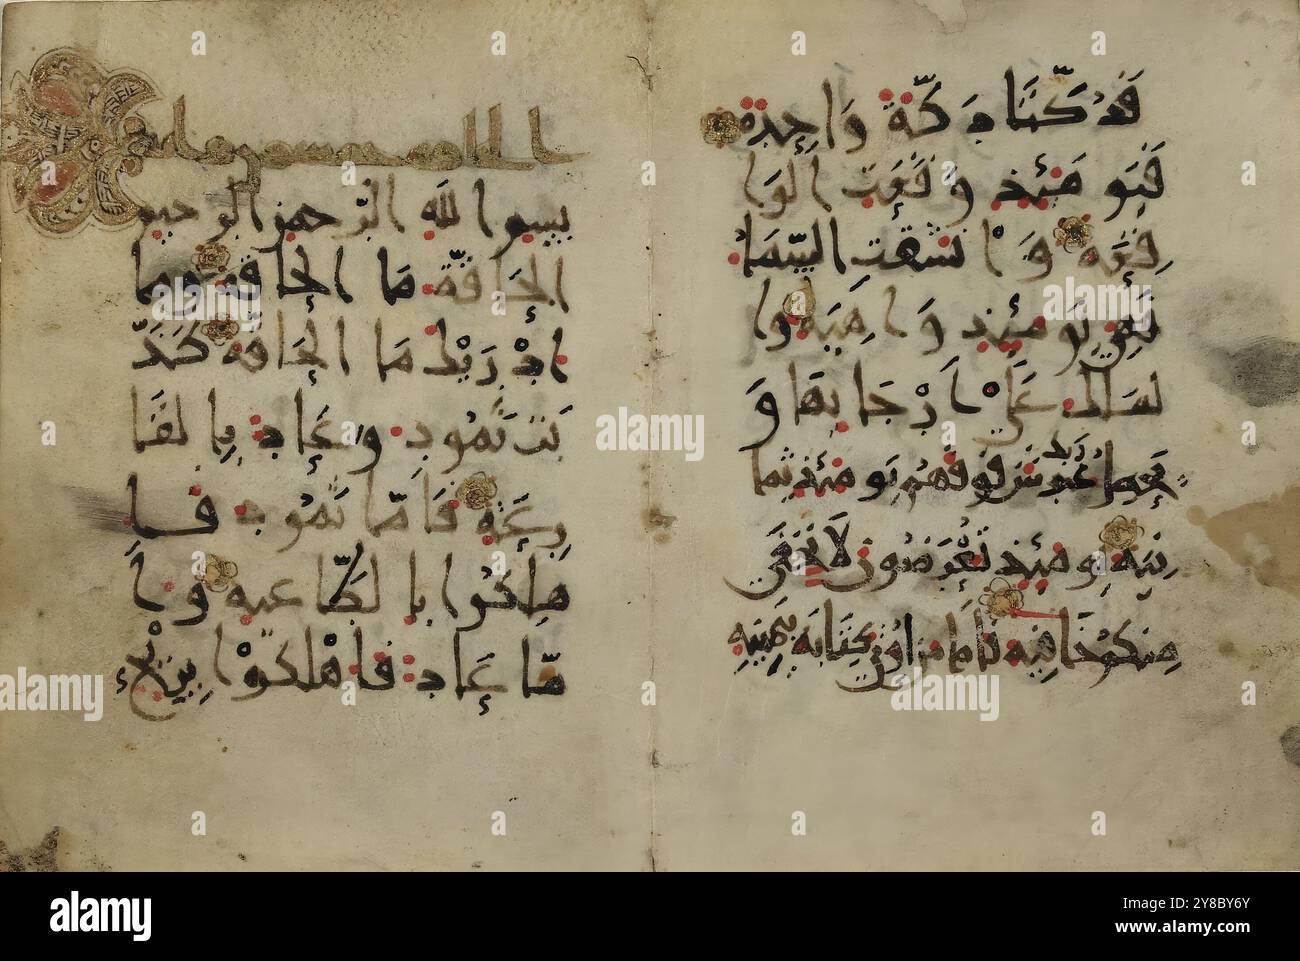 فدكتا دكة واحدة
فيومئذ وقعت الوا
قعة وانشقت السما
فهي يومئذ واهية وا
لملك على أرجائها و
يحمل عرش ربك فوقهم يومئذ ثما
نية يومئذ تعرضون لا تخفى
منكم خافية فأما من أوتي كتابه بيمينه
بسم الله الرحمن الرحيم
الحاقة ما الحاقة وما
ادريك ما الحاقة كذ
بت ثمود وعاد بالقا
رعة فأما ثمود فا
هلكوا بالطاغية وأ
ما عاد فأهلكوا بريح
alamy
Image ID: 2Y8BY6Y
www.alamy.com